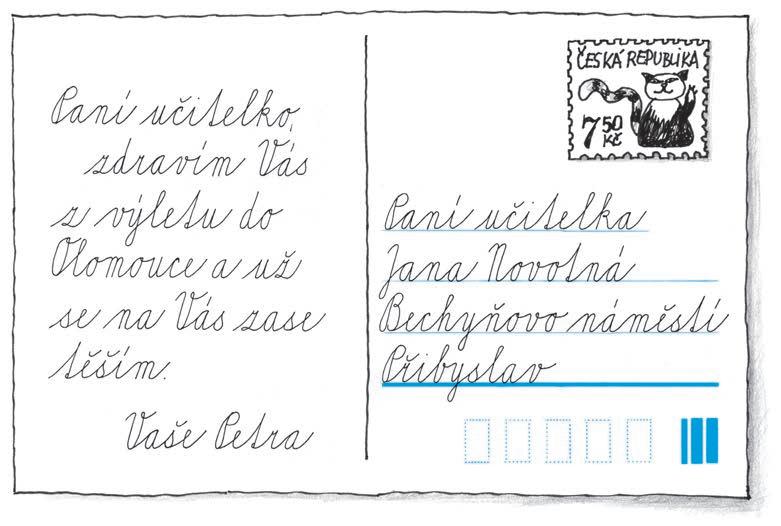 Paní učitelko,
zdravím Vás
z výletu do
Olomouce a už
se na Vás zase
těším.
Vaše Petra
ČESKÁ REPUBLIKA
7 50
Kč
Paní učitelka
Jana Novotná
Bechyňovo náměstí
Přibyslav